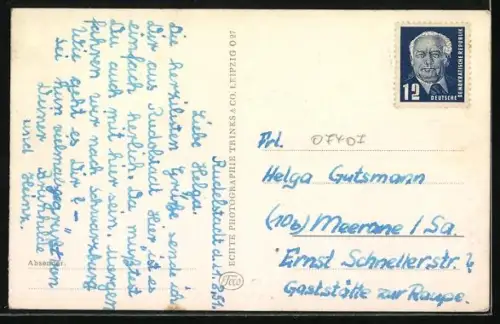 Rudolstadt d. 1. 7. 51.
Liebe Helga.
Die herzlichsten Grüße sende ich
Dir aus Rudolstadt. Hier ist es
einfach herlich. Da müßtest
Du auch mit hier sein. Morgen
fahren wir nach Schwarzburg
Wie geht es Dir? —
Sei nun vielmals gegrüßt von
Deiner
und Heinz.
Absender:
ECHTE PHOTOGRAPHIE TRINKS & CO. LEIPZIG O 27
Trico
12
DEUTSCHE
DEMOKRATISCHE REPUBLIK
Frl.
07407
Helga Gutsmann
(10b) Meerane / Sa.
Ernst Schnellerstr. 6
Gaststätte zur Raupe.